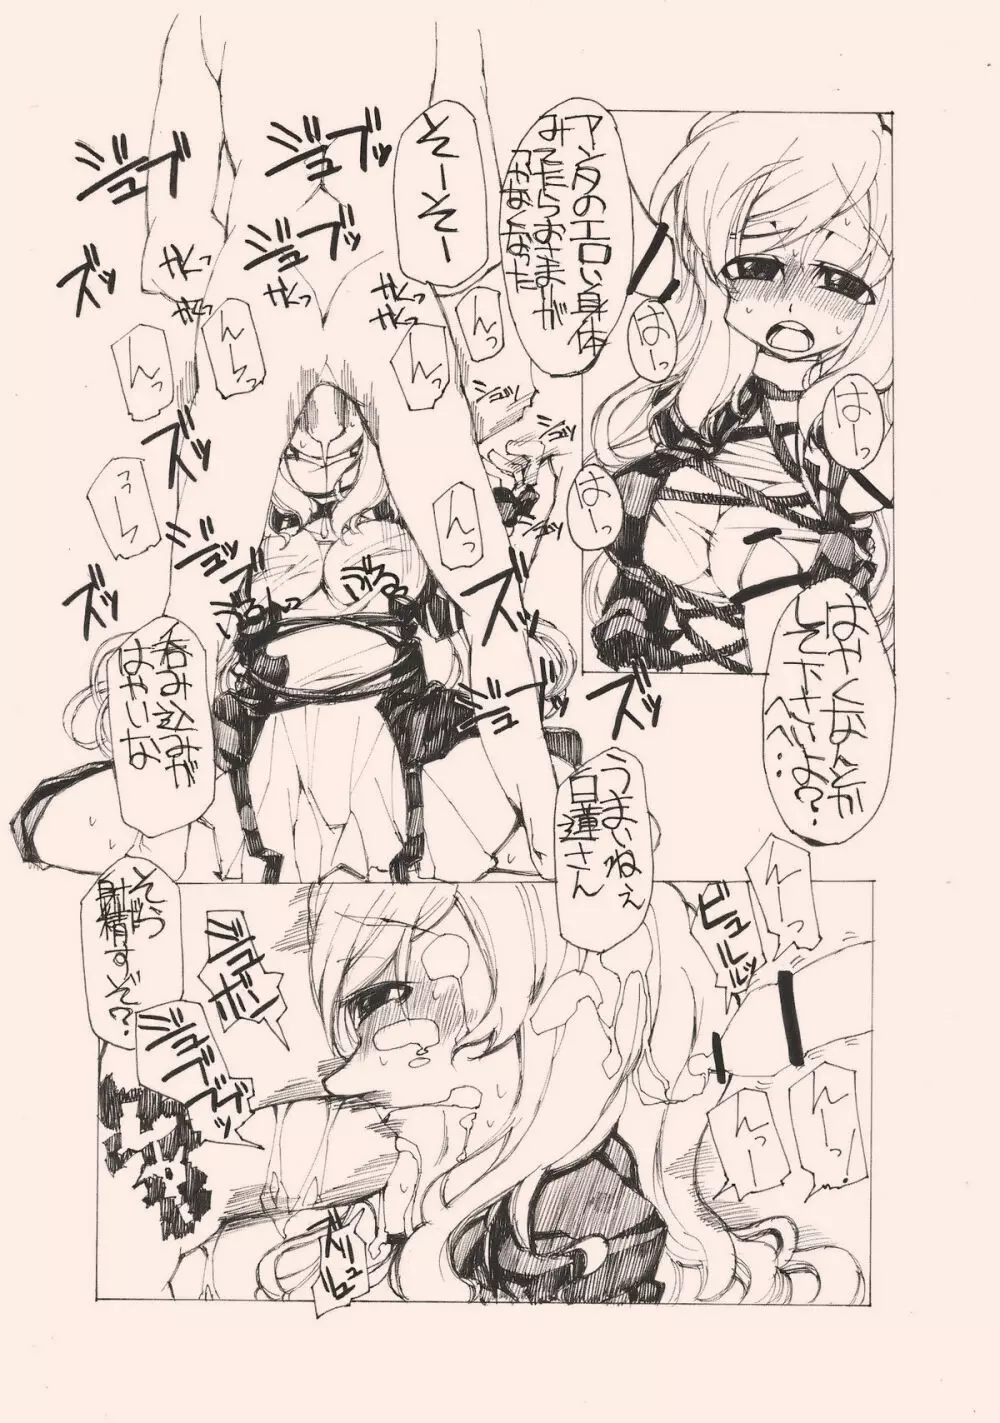 アンタのエロい身体
みてたらおさまが
つかなくなった
はーっ
はーっ
はーっ
はやくなんとか
して下さいよ?
へへ…
そーそー
ジュブッ
ジュブ
ジュブッ
ズッ
やくっ
やくっ
やくっ
んーっ
んっ
んっ
んっ
ジュッ
ジュッ
ズッ
んっ
ジュブッ
ズッ
ズッ
ジュブッ
ズッ
呑み込みが
はやいな
うまいねぇ
白蓮さん
んーっ
ビュルルッ
そらっ
射精すぞ?
ジュボッ
ジュブブッ
んーっ
んーっ!